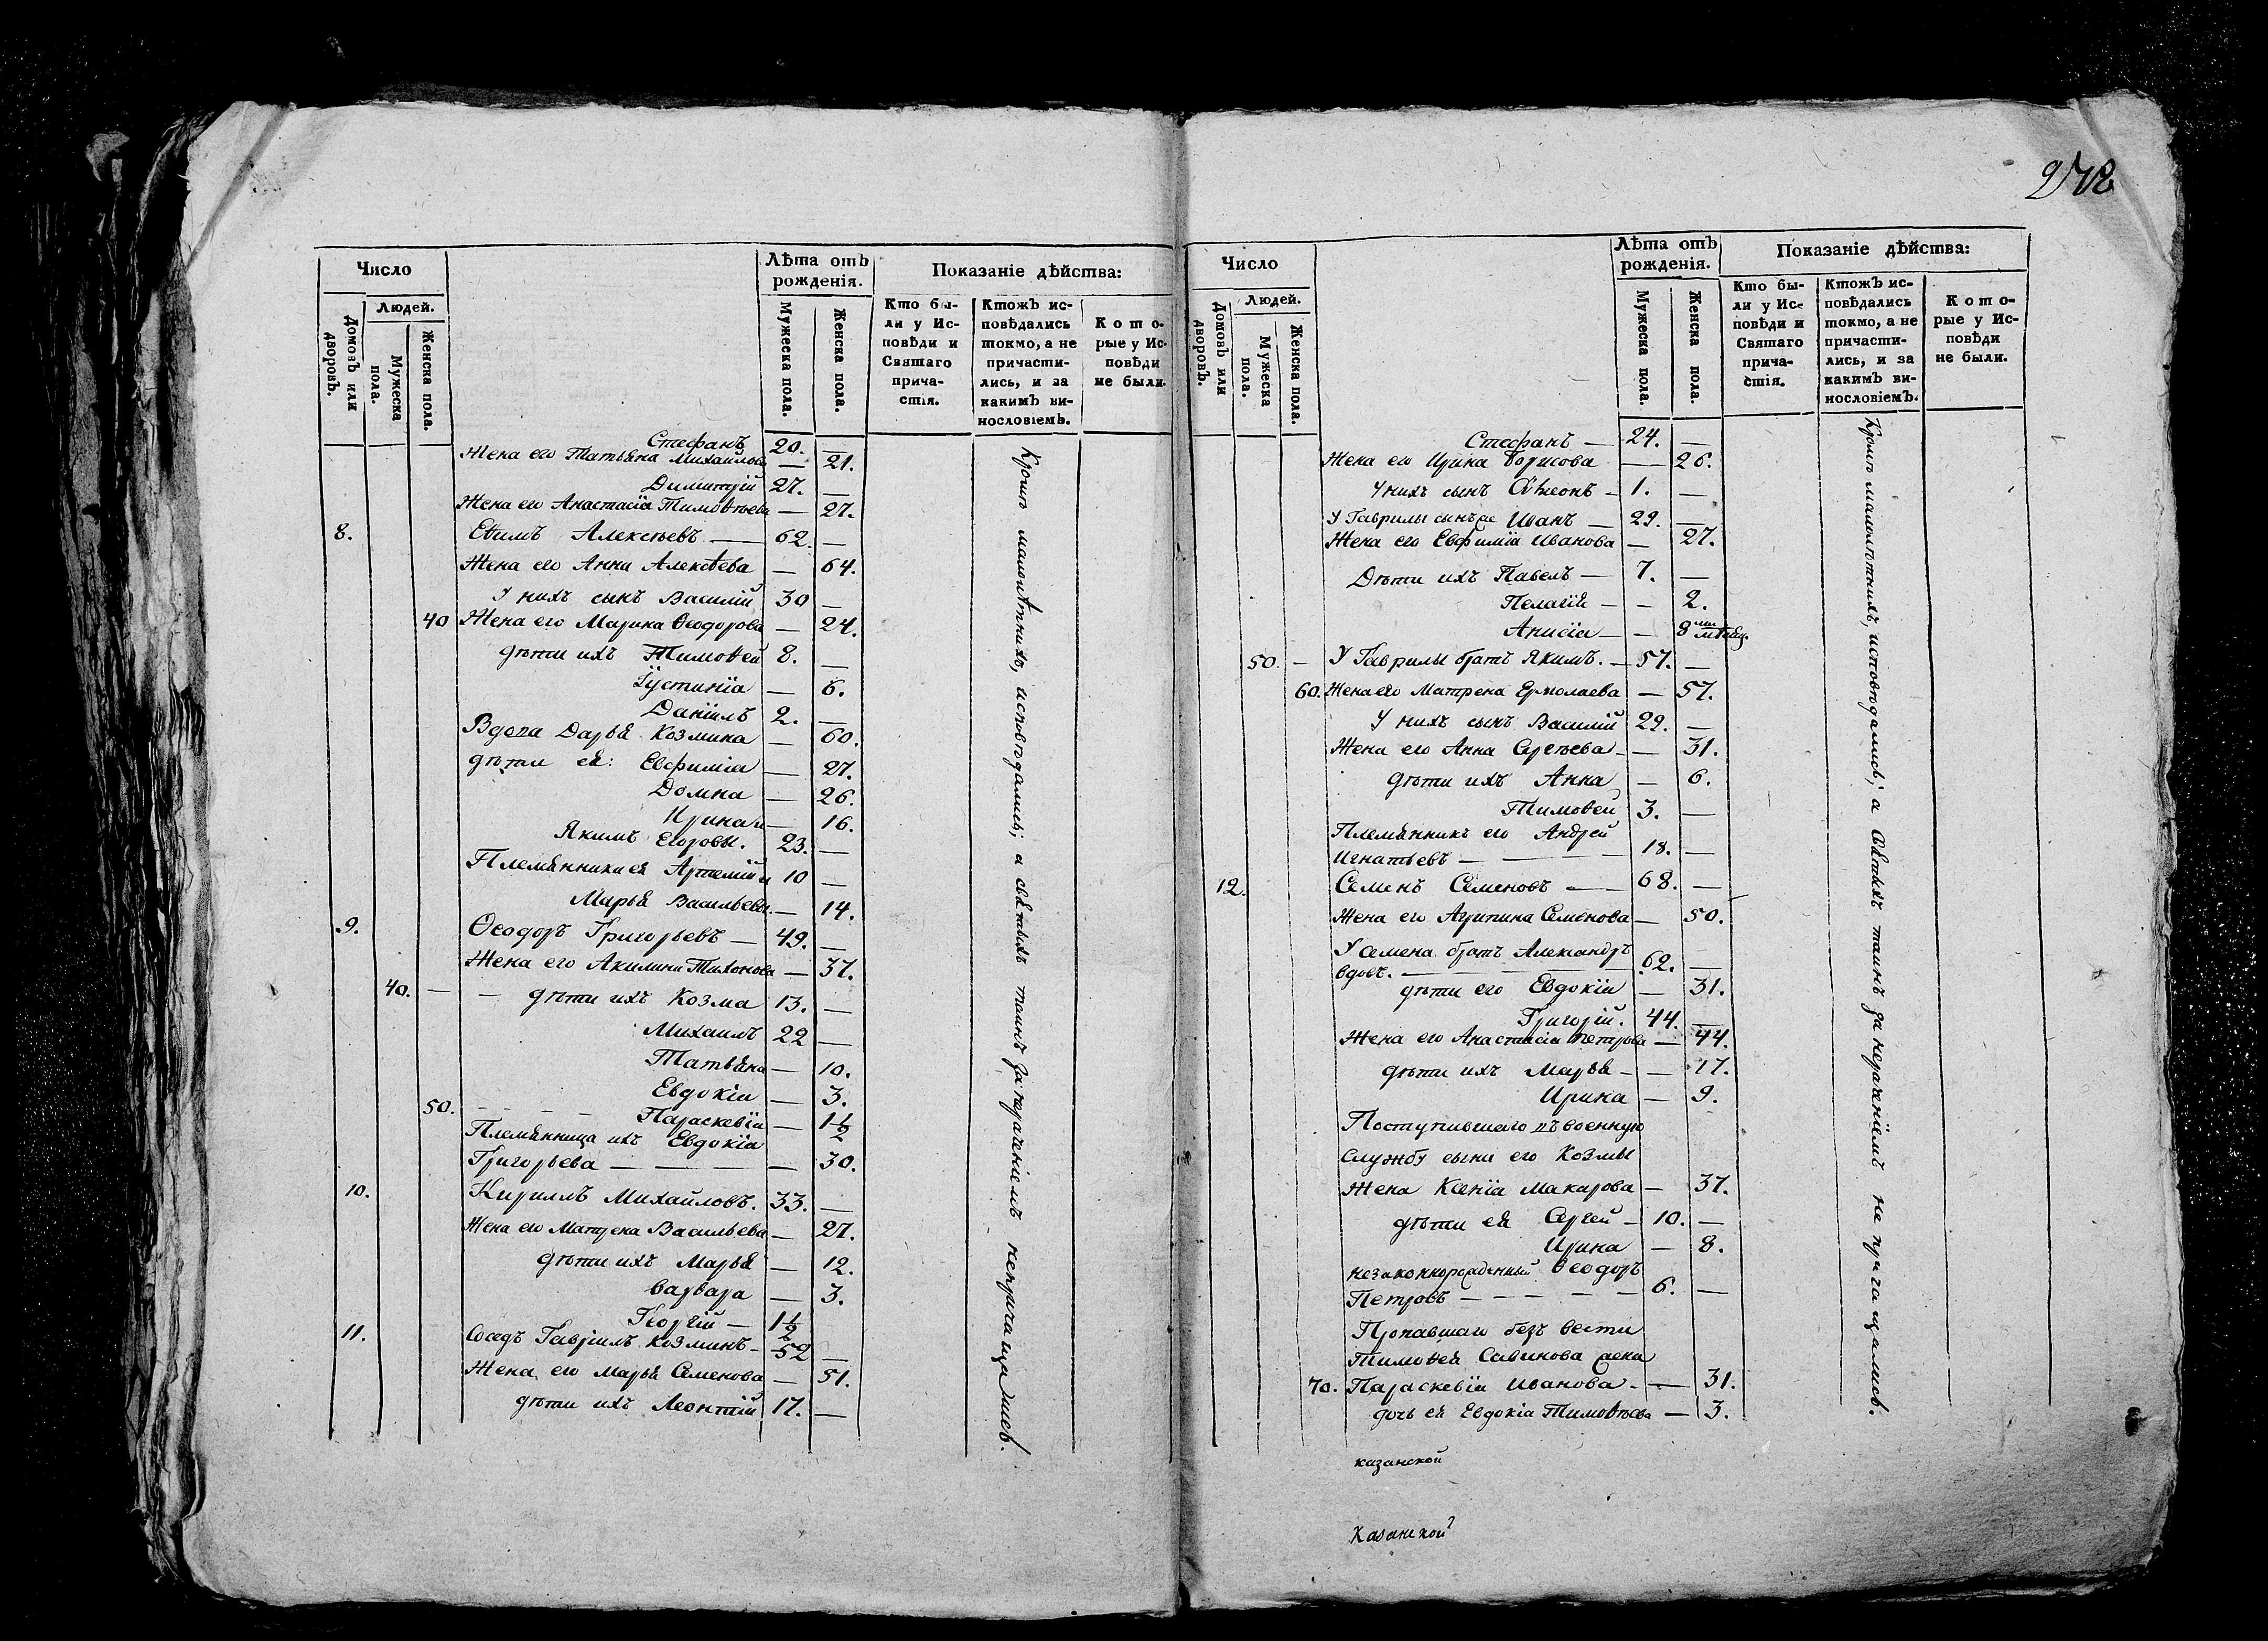 Число
Людей.
Домовъ или дворовъ.
Мужеска пола.
Женска пола.
Лѣта отъ рожденія.
Мужеска пола.
Женска пола.
Показаніе дѣйства:
Кто бы-
ли у Ис-
повѣди и
Святаго
прича-
стія.
Ктожъ ис-
повѣдались
токмо, а не
причасти-
лись, и за
какимъ ви-
нословіемъ.
Кото-
рые у Ис-
повѣди
не были.
Стефанъ 20. —
Жена его Татьяна Михайлова — 21.
Димитрій 27. —
Жена его Анастасіа Тимоѳѣева — 27.
8. Еѳимъ Алексѣевъ — 62. —
Жена его Анна Алексѣева — 64.
У нихъ сынъ Василій 30 —
40 Жена его Марина Ѳеодорова — 24.
дѣти ихъ Тимоѳей 8. —
Іустиніа — 6.
Даніилъ 2. —
Вдова Дарья Козмина — 60.
дѣти ея: Евфиміа — 27.
Домна — 26.
Ирина и — 16.
Якимъ Егоровы. 23. —
Племянники ея Артемій и 10 —
Марья Васильевы. — 14.
9. Ѳеодоръ Григорьевъ — 49. —
Жена его Акилина Тихонова — 37.
40. — — дѣти ихъ Козма 13. —
Михаилъ 22 —
Татьяна — 10.
Евдокіа — 3.
50. — — — — Параскевіа — 1½
Племянница ихъ Евдокіа
Григорьева — — — — 30.
10. Кириллъ Михайловъ. 33. —
Жена его Матрена Васильева — 27.
дѣти ихъ Марья — 12.
Варвара — 3.
Георгій — 1½
11. Солдъ Гавріилъ Козминъ — 52 —
Жена его Марья Семенова — 51.
дѣти ихъ Леонтій 17. —
Кромѣ малолѣтнихъ, исповѣдались; а святыхъ таинъ за нераченіемъ непричащались.
272
Число
Людей.
Домовъ или дворовъ.
Мужеска пола.
Женска пола.
Лѣта отъ рожденія.
Мужеска пола.
Женска пола.
Показаніе дѣйства:
Кто бы-
ли у Ис-
повѣди и
Святаго
прича-
стія.
Ктожъ ис-
повѣдались
токмо, а не
причасти-
лись, и за
какимъ ви-
нословіемъ.
Кото-
рые у Ис-
повѣди
не были.
Стефанъ — 24. —
Жена его Ирина Борисова — 26.
У нихъ сынъ Сѵмеонъ — 1. —
У Гаврилы сынъ Иванъ — 29. —
Жена его Евфиміа Иванова — 27.
Дѣти ихъ Павелъ — 7. —
Пелагіа — — 2.
Анисіа — — 8ми мѣсяц.
50. — У Гаврилы братъ Якимъ. — 57. —
60. Жена его Матрена Ермолаева — 57.
У нихъ сынъ Василій 29. —
Жена его Анна Сергѣева — — 31.
дѣти ихъ Анна — 6.
Тимоѳей 3. —
Племянникъ его Андрей
Игнатьевъ — — — 18. —
12. Семенъ Семеновъ — 68. —
Жена его Агрипина Семенова — 50.
У Семена братъ Александръ
вдовъ. — — — 62. —
дѣти его Евдокіа — 31.
Григорій. 44. —
Жена его Анастасіа Петрова — 44.
дѣти ихъ Марья — — 17.
Ирина — 9.
Поступившаго въ военную
службу сына его Козмы
Жена Ксеніа Макарова — 37.
дѣти ея Сергей — 10. —
Ирина — 8.
незаконнорожденный Ѳеодоръ
Петровъ — — — — — 6. —
Пропавшаго безъ вести
Тимоѳея Савинова жена
70. Параскевіа Иванова — — 31.
дочь ея Евдокіа Тимоѳѣева — 3.
Кромѣ малолѣтнихъ, исповѣдались; а святыхъ таинъ за нераченіемъ не причащались.
казанской
Казанской